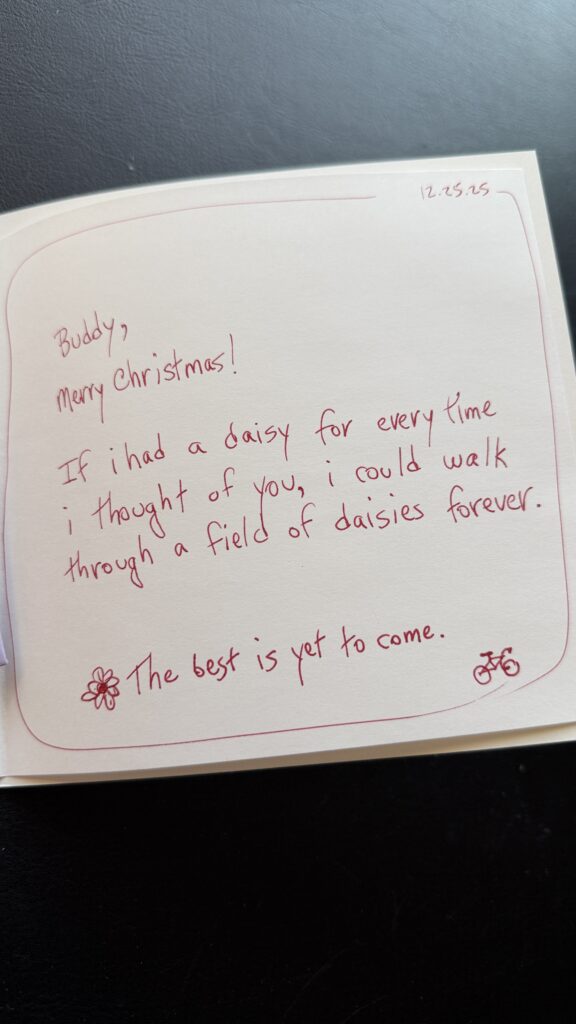 12.25.25
Buddy,
Merry Christmas!
If i had a daisy for every time
i thought of you, i could walk
through a field of daisies forever.
The best is yet to come.